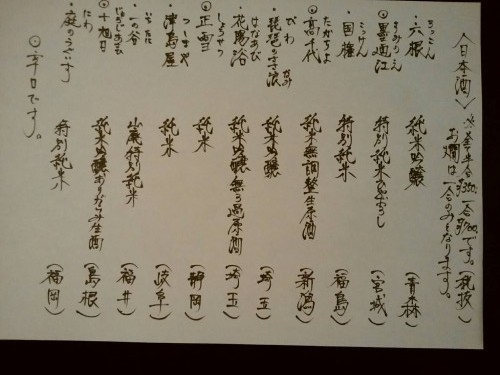 〈日本酒〉 ※全て半合350、一合700、です。(税抜)
お燗は一合のみとなります。
・六根 ろっこん 純米吟醸 (青森)
◎墨廼江 すみのえ 特別純米ひやおろし (宮城)
・国権 こっけん 特別純米 (福島)
◎高千代 たかちよ 純米無調整生原酒 (新潟)
・琵琶の
びわ なみ 純米吟醸 (埼玉)
・花陽浴 はなあび 純米吟醸無ろ過原酒 (埼玉)
◎正雪 しょうせつ 純米 (静岡)
・津島屋 つしまや 純米 (岐阜)
・一の谷 いちのたに 山廃特別純米 (福井)
◎十旭日 じゅうじあさひ 純米吟醸おりがらみ生酒 (島根)
・庭のうぐいす にわ 特別純米 (福岡)
◎辛口です。